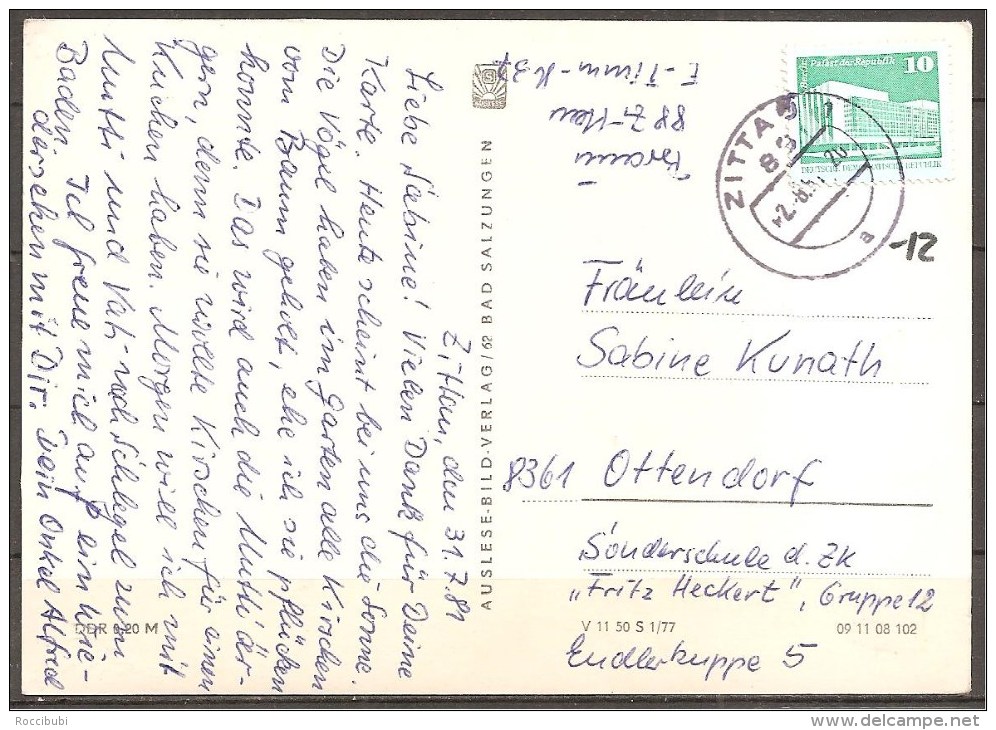 Zittau, den 31.7.81
Liebe Sabine! Vielen Dank für Deine
Karte. Heute scheint bei uns die Sonne.
Die Vögel haben im Garten alle Kirschen
vom Baum geholt, ehe ich sie pflücken
konnte. Das wird auch die Mutti är-
gern, denn sie wollte Kirschen für einen
Kuchen haben. Morgen will ich mit
Mutti und Vati nach Schlegel zum
Baden. Ich freue mich auf ein Wie-
dersehen mit Dir. Dein Onkel Alfred
DDR 0,20 M
AUSLESE-BILD-VERLAG/62 BAD SALZUNGEN
Braun
88 Z-
10
Palast der Republik
Berlin
DEUTSCHE DEMOKRATISCHE REPUBLIK
ZITTAU 1
a
-12
Fräulein
Sabine Kunath
8361 Ottendorf
Sonderschule d. ZK
„Fritz Heckert", Gruppe 12
Endlerkuppe 5
V 11 50 S 1/77
09 11 08 102
Roccibubi
www.delcampe.net